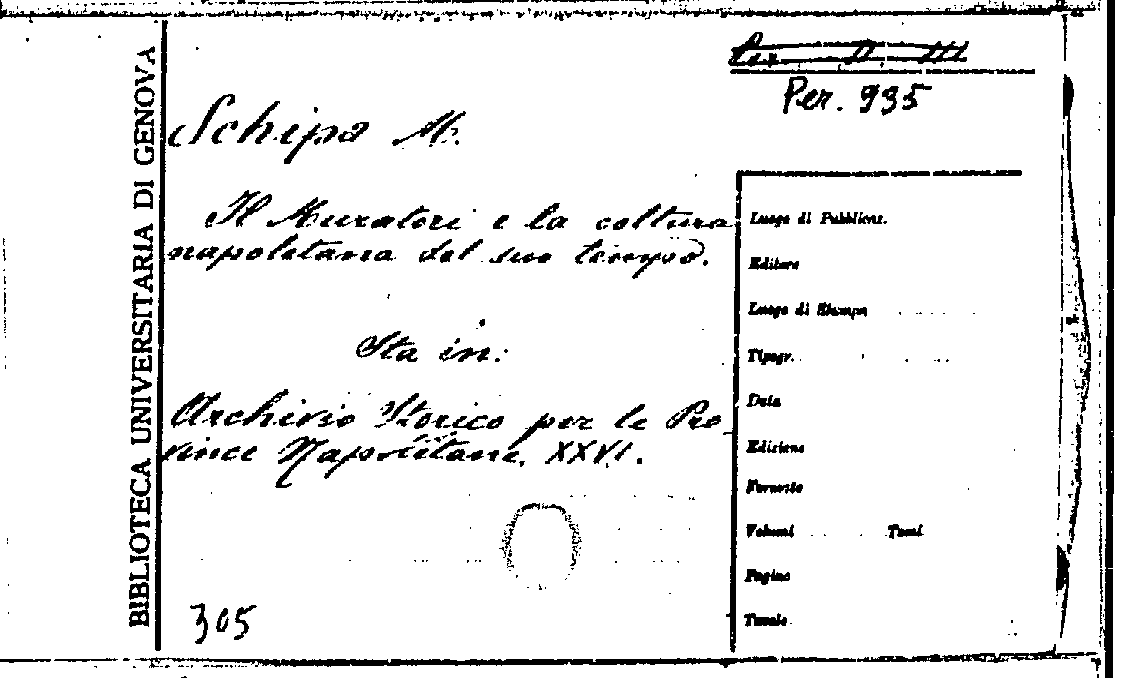 BIBLIOTECA UNIVERSITARIA DI GENOVA
Per. 935
Schipa M.
Il Muratori e la coltura
napoletana del suo tempo.
Sta in:
Archivio Storico per le Pro
vince Napoletane. XXVI.
305
Luogo di Pubblicaz.
Editore
Luogo di Stampa
Tipogr.
Data
Edizione
Formato
Volumi Tomi
Pagine
Tavole